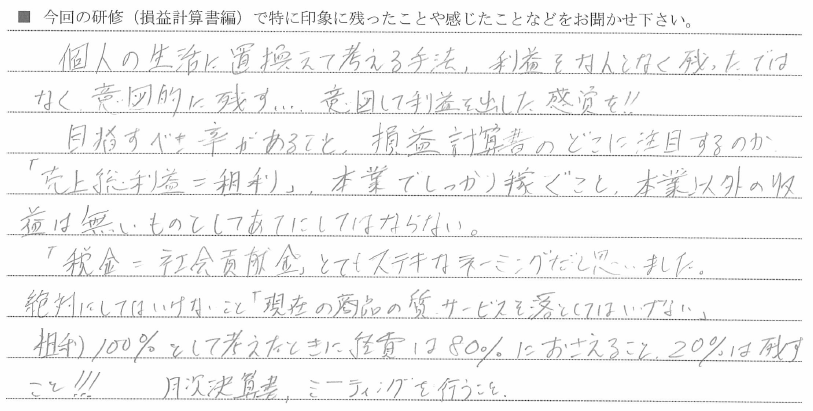 ■ 今回の研修（損益計算書編）で特に印象に残ったことや感じたことなどをお聞かせ下さい。
個人の生活に置換えて考える手法、利益をなんとなく残ったでは
なく意図的に残す…. 意図して利益を出した感覚を!!
目指すべき率があること、損益計算書のどこに注目するのか
「売上総利益＝粗利」、本業でしっかり稼ぐこと、本業以外の収
益は無いものとしてあてにしてはならない。
「税金＝社会貢献金」とてもステキなネーミングだと思いました。
絶対にしてはいけないこと「現在の商品の質、サービスを落としてはいけない」
粗利100%として考えたときに経費は80%におさえること、20%は残す
こと!!! 月次決算書、ミーティングを行うこと。